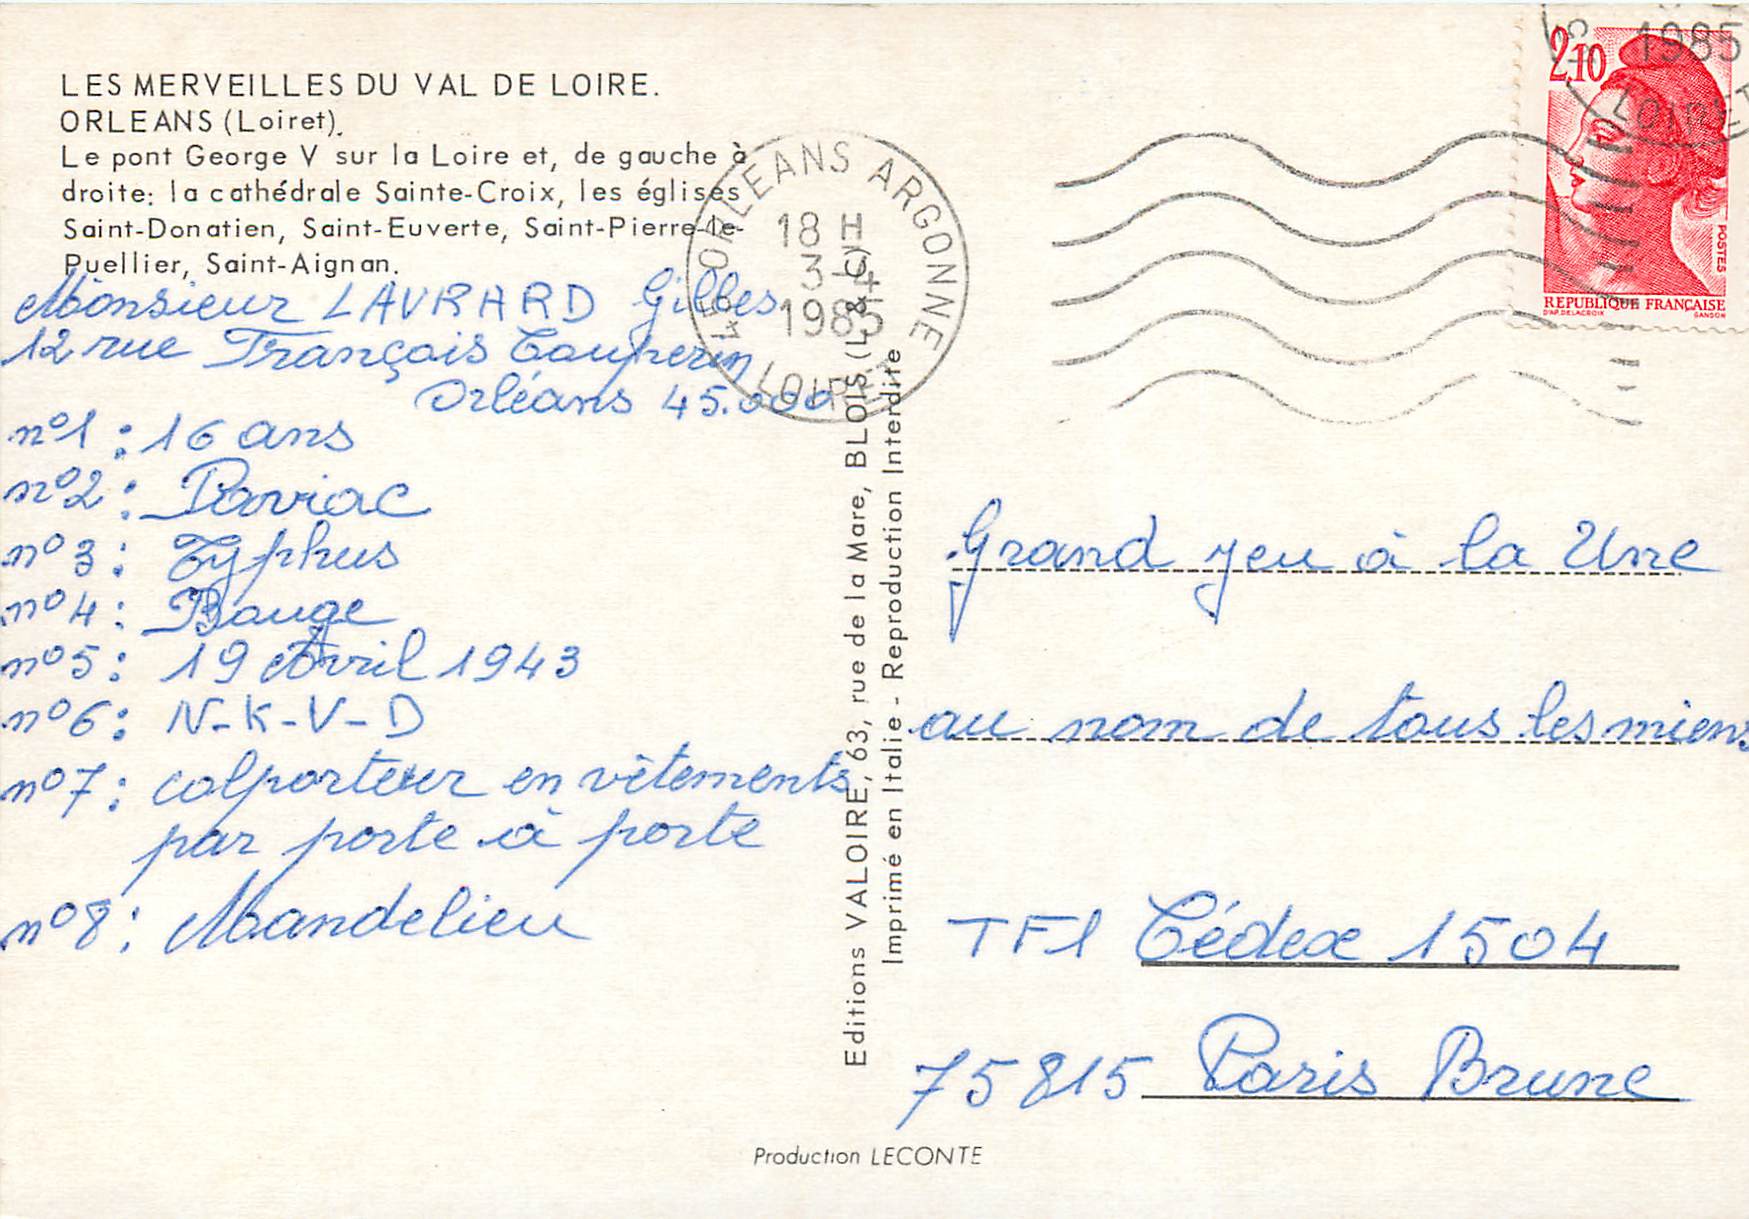 LES MERVEILLES DU VAL DE LOIRE.
ORLEANS (Loiret).
Le pont George V sur la Loire et, de gauche à
droite: la cathédrale Sainte-Croix, les églises
Saint-Donatien, Saint-Euverte, Saint-Pierre-le-
Puellier, Saint-Aignan.
Monsieur LAVRARD Gilles
12 rue François Couperin
Orléans 45.000
n°1 : 16 ans
n°2 : Raviac
n°3 : Typhus
n°4 : Bauge
n°5 : 19 Avril 1943
n°6 : N-K-V-D
n°7 : colporteur en vêtements
par porte à porte
n°8 : Mandelieu
45 ORLEANS ARGONNE
18 H
3-4
1985
LOIRET
Editions VALOIRE, 63, rue de la Mare, BLOIS (L. & C.)
Imprimé en Italie - Reproduction Interdite
1985
LOIRET
2,10
POSTES
REPUBLIQUE FRANÇAISE
D'AP. DELACROIX GANDON
Grand jeu à la Une
au nom de tous les miens
TF1 Cédex 1504
75815 Paris Brune
Production LECONTE